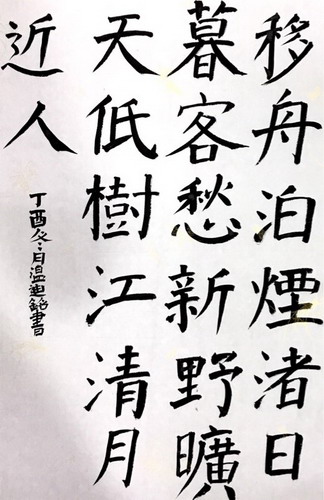 移舟泊煙渚日
暮客愁新野曠
天低樹江清月
近人
丁酉冬月溫迪銘書